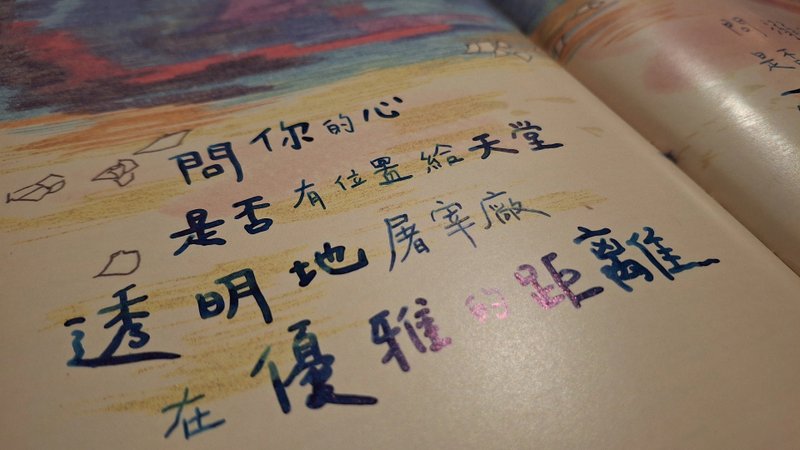 問你的心
是否有位置給天堂
透明地屠宰廠
在優雅的距離